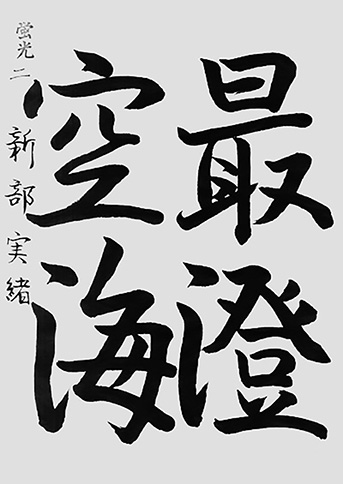 最澄
空海
蛍光二 新部実緒